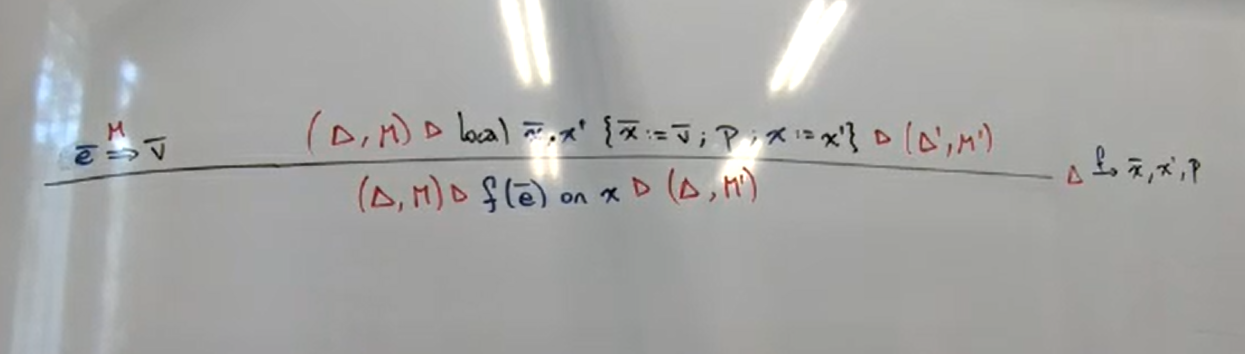 ē ⇒^M v̄    (Δ, M) ▷ local x̄, x' {x̄ := v̄ ; P ; x := x'} ▷ (Δ', M')
(Δ, M) ▷ f(ē) on x ▷ (Δ, M')    Δ ↪^f x̄, x', P